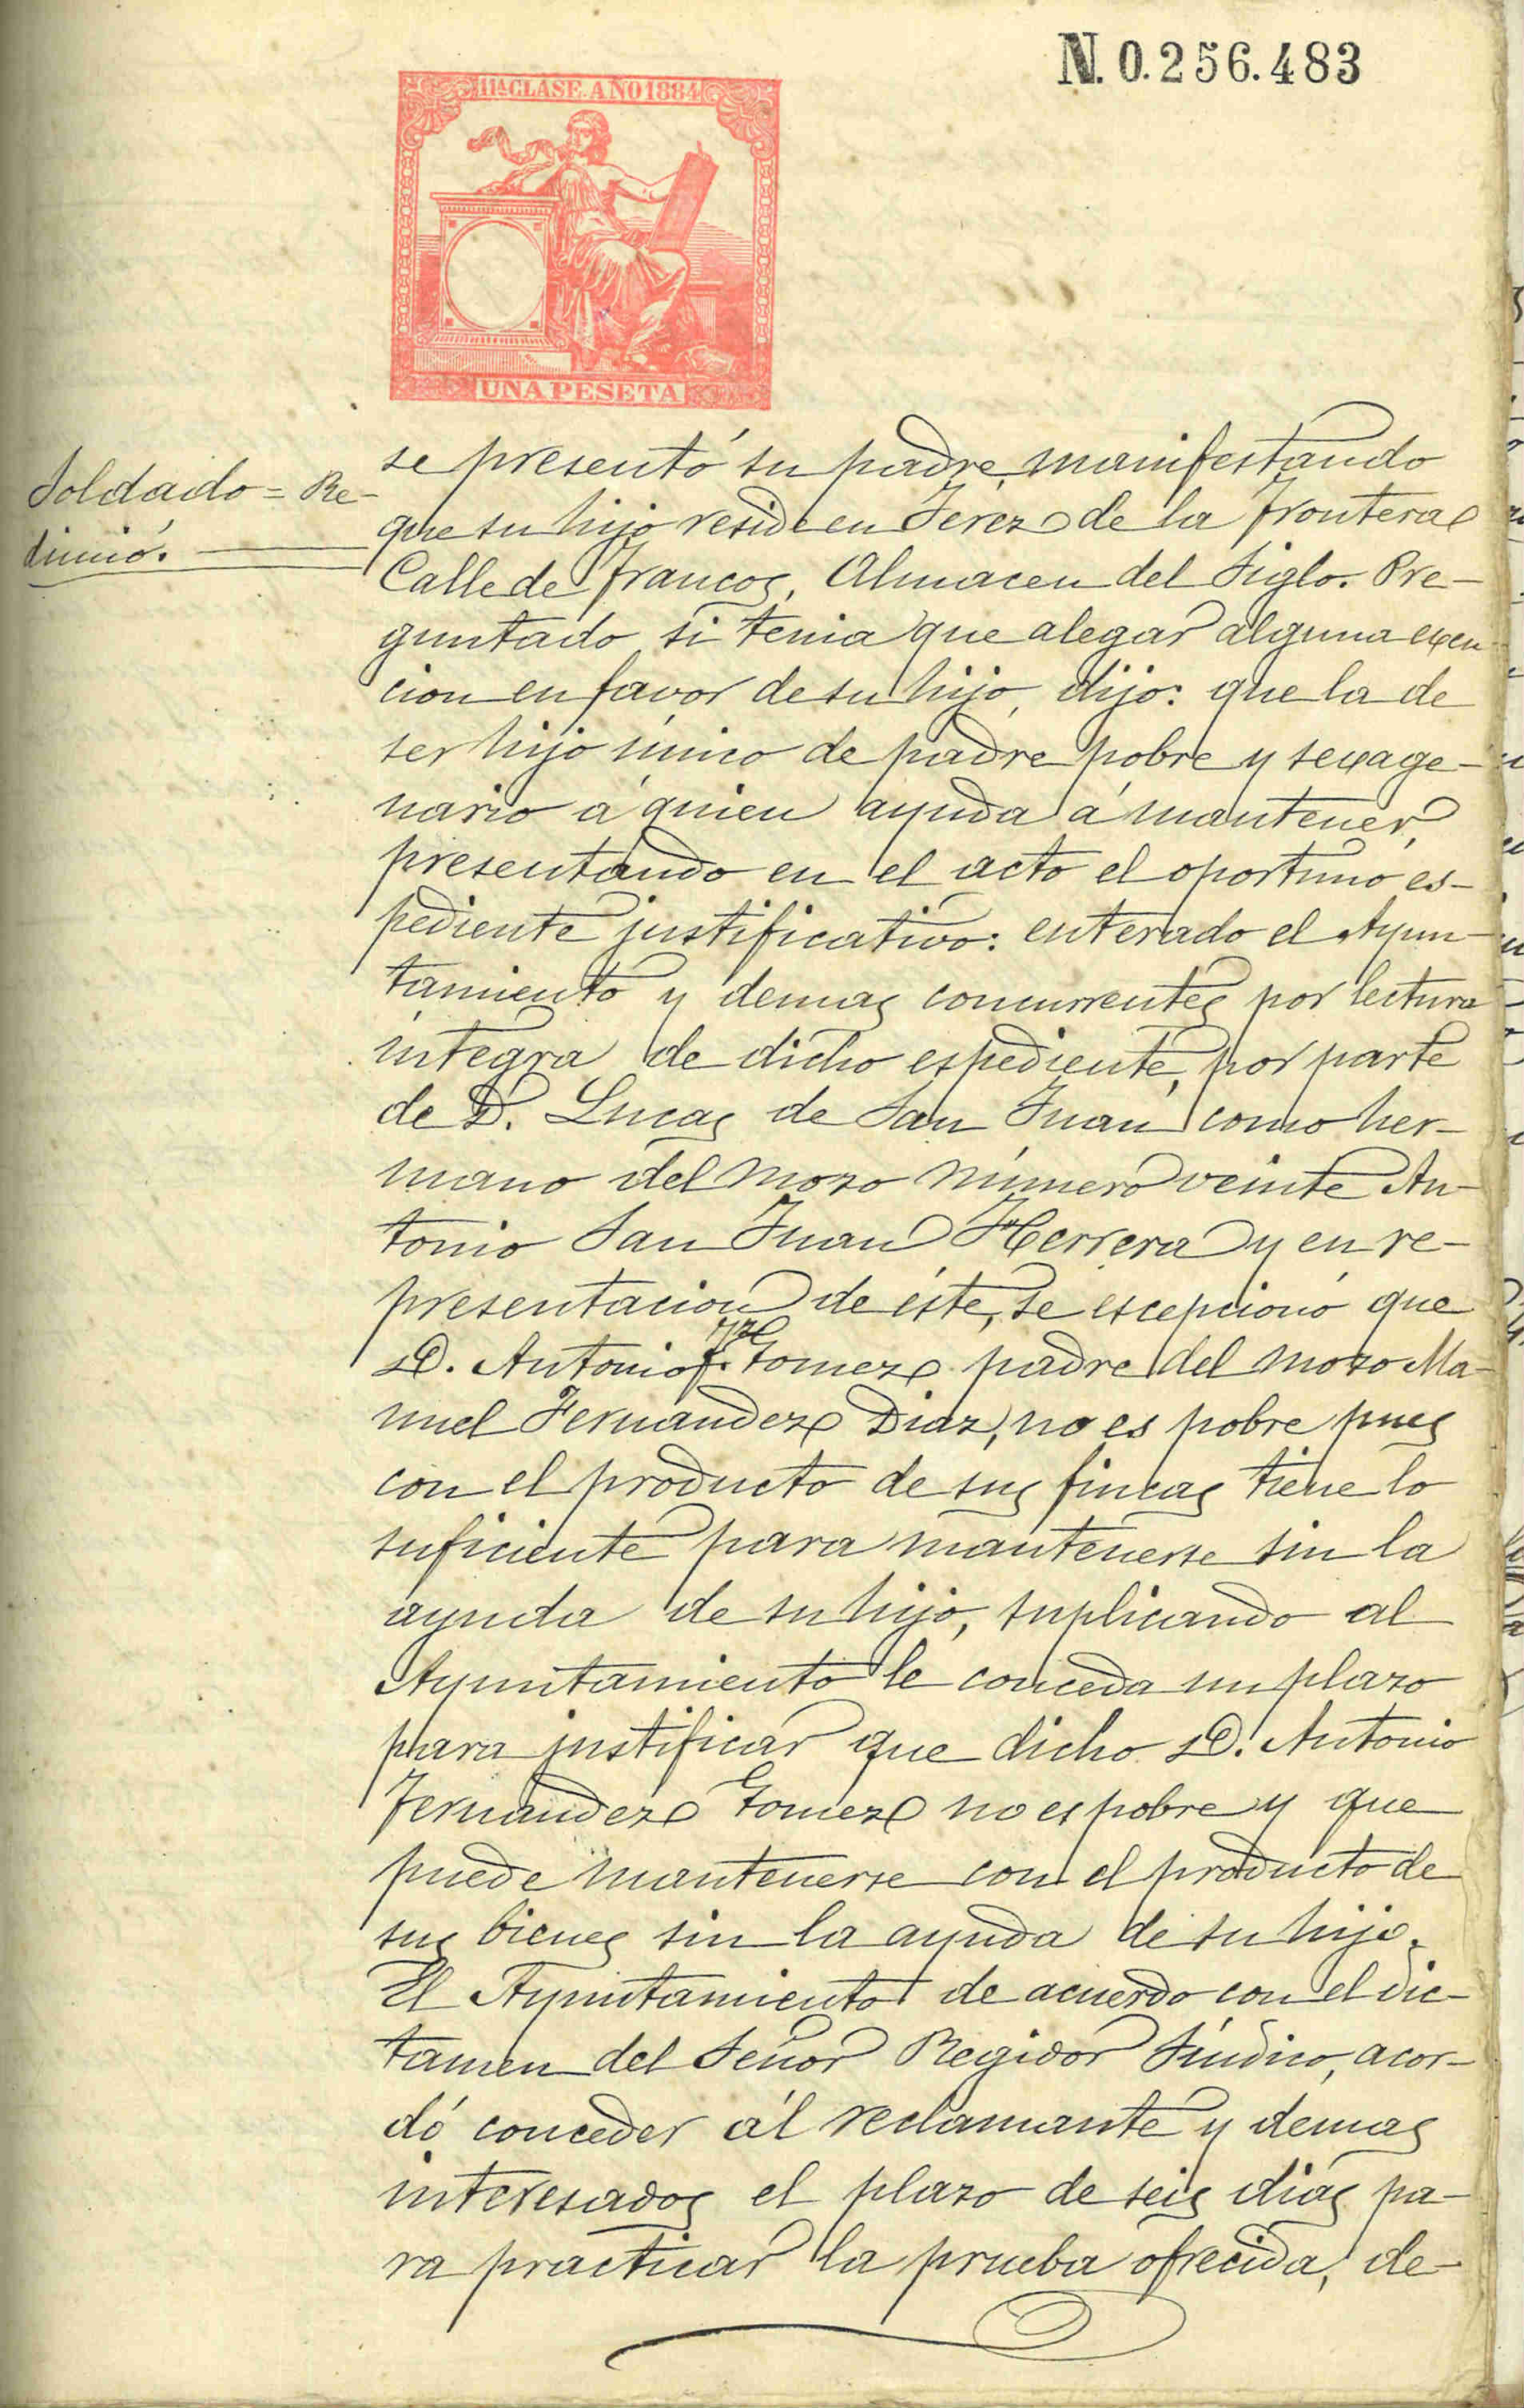 N. 0.256.483
11ª CLASE. AÑO 1884
UNA PESETA
Soldado = Re-
dimió.
se presentó su padre, manifestando
que su hijo reside en Jeréz de la Frontera
Calle de Francos, Almacen del Siglo. Pre-
guntado si tenia que alegar alguna exen-
cion en favor de su hijo, dijo: que la de
ser hijo único de padre pobre y sexage-
nario á quien ayuda á mantener,
presentando en el acto el oportuno es-
pediente justificativo: enterado el Ayun-
tamiento y demas concurrentes por lectura
integra de dicho espediente, por parte
de D. Lucas de San Juan, como her-
mano del mozo número veinte An-
tonio San Juan Herrera y en re-
presentacion de éste, se escepcionó que
D. Antonio Frz Gomez padre del mozo Ma-
nuel Fernandez Diaz, no es pobre pues
con el producto de sus fincas tiene lo
suficiente para mantenerse sin la
ayuda de su hijo, suplicando al
Ayuntamiento le conceda un plazo
para justificar que dicho D. Antonio
Fernandez Gomez no es pobre y que
puede mantenerse con el producto de
sus bienes sin la ayuda de su hijo.
El Ayuntamiento de acuerdo con el dic-
tamen del Señor Regidor Síndico, acor-
dó conceder ál reclamante y demas
interesados el plazo de seis dias pa-
ra practicar la prueba ofrecida, de-